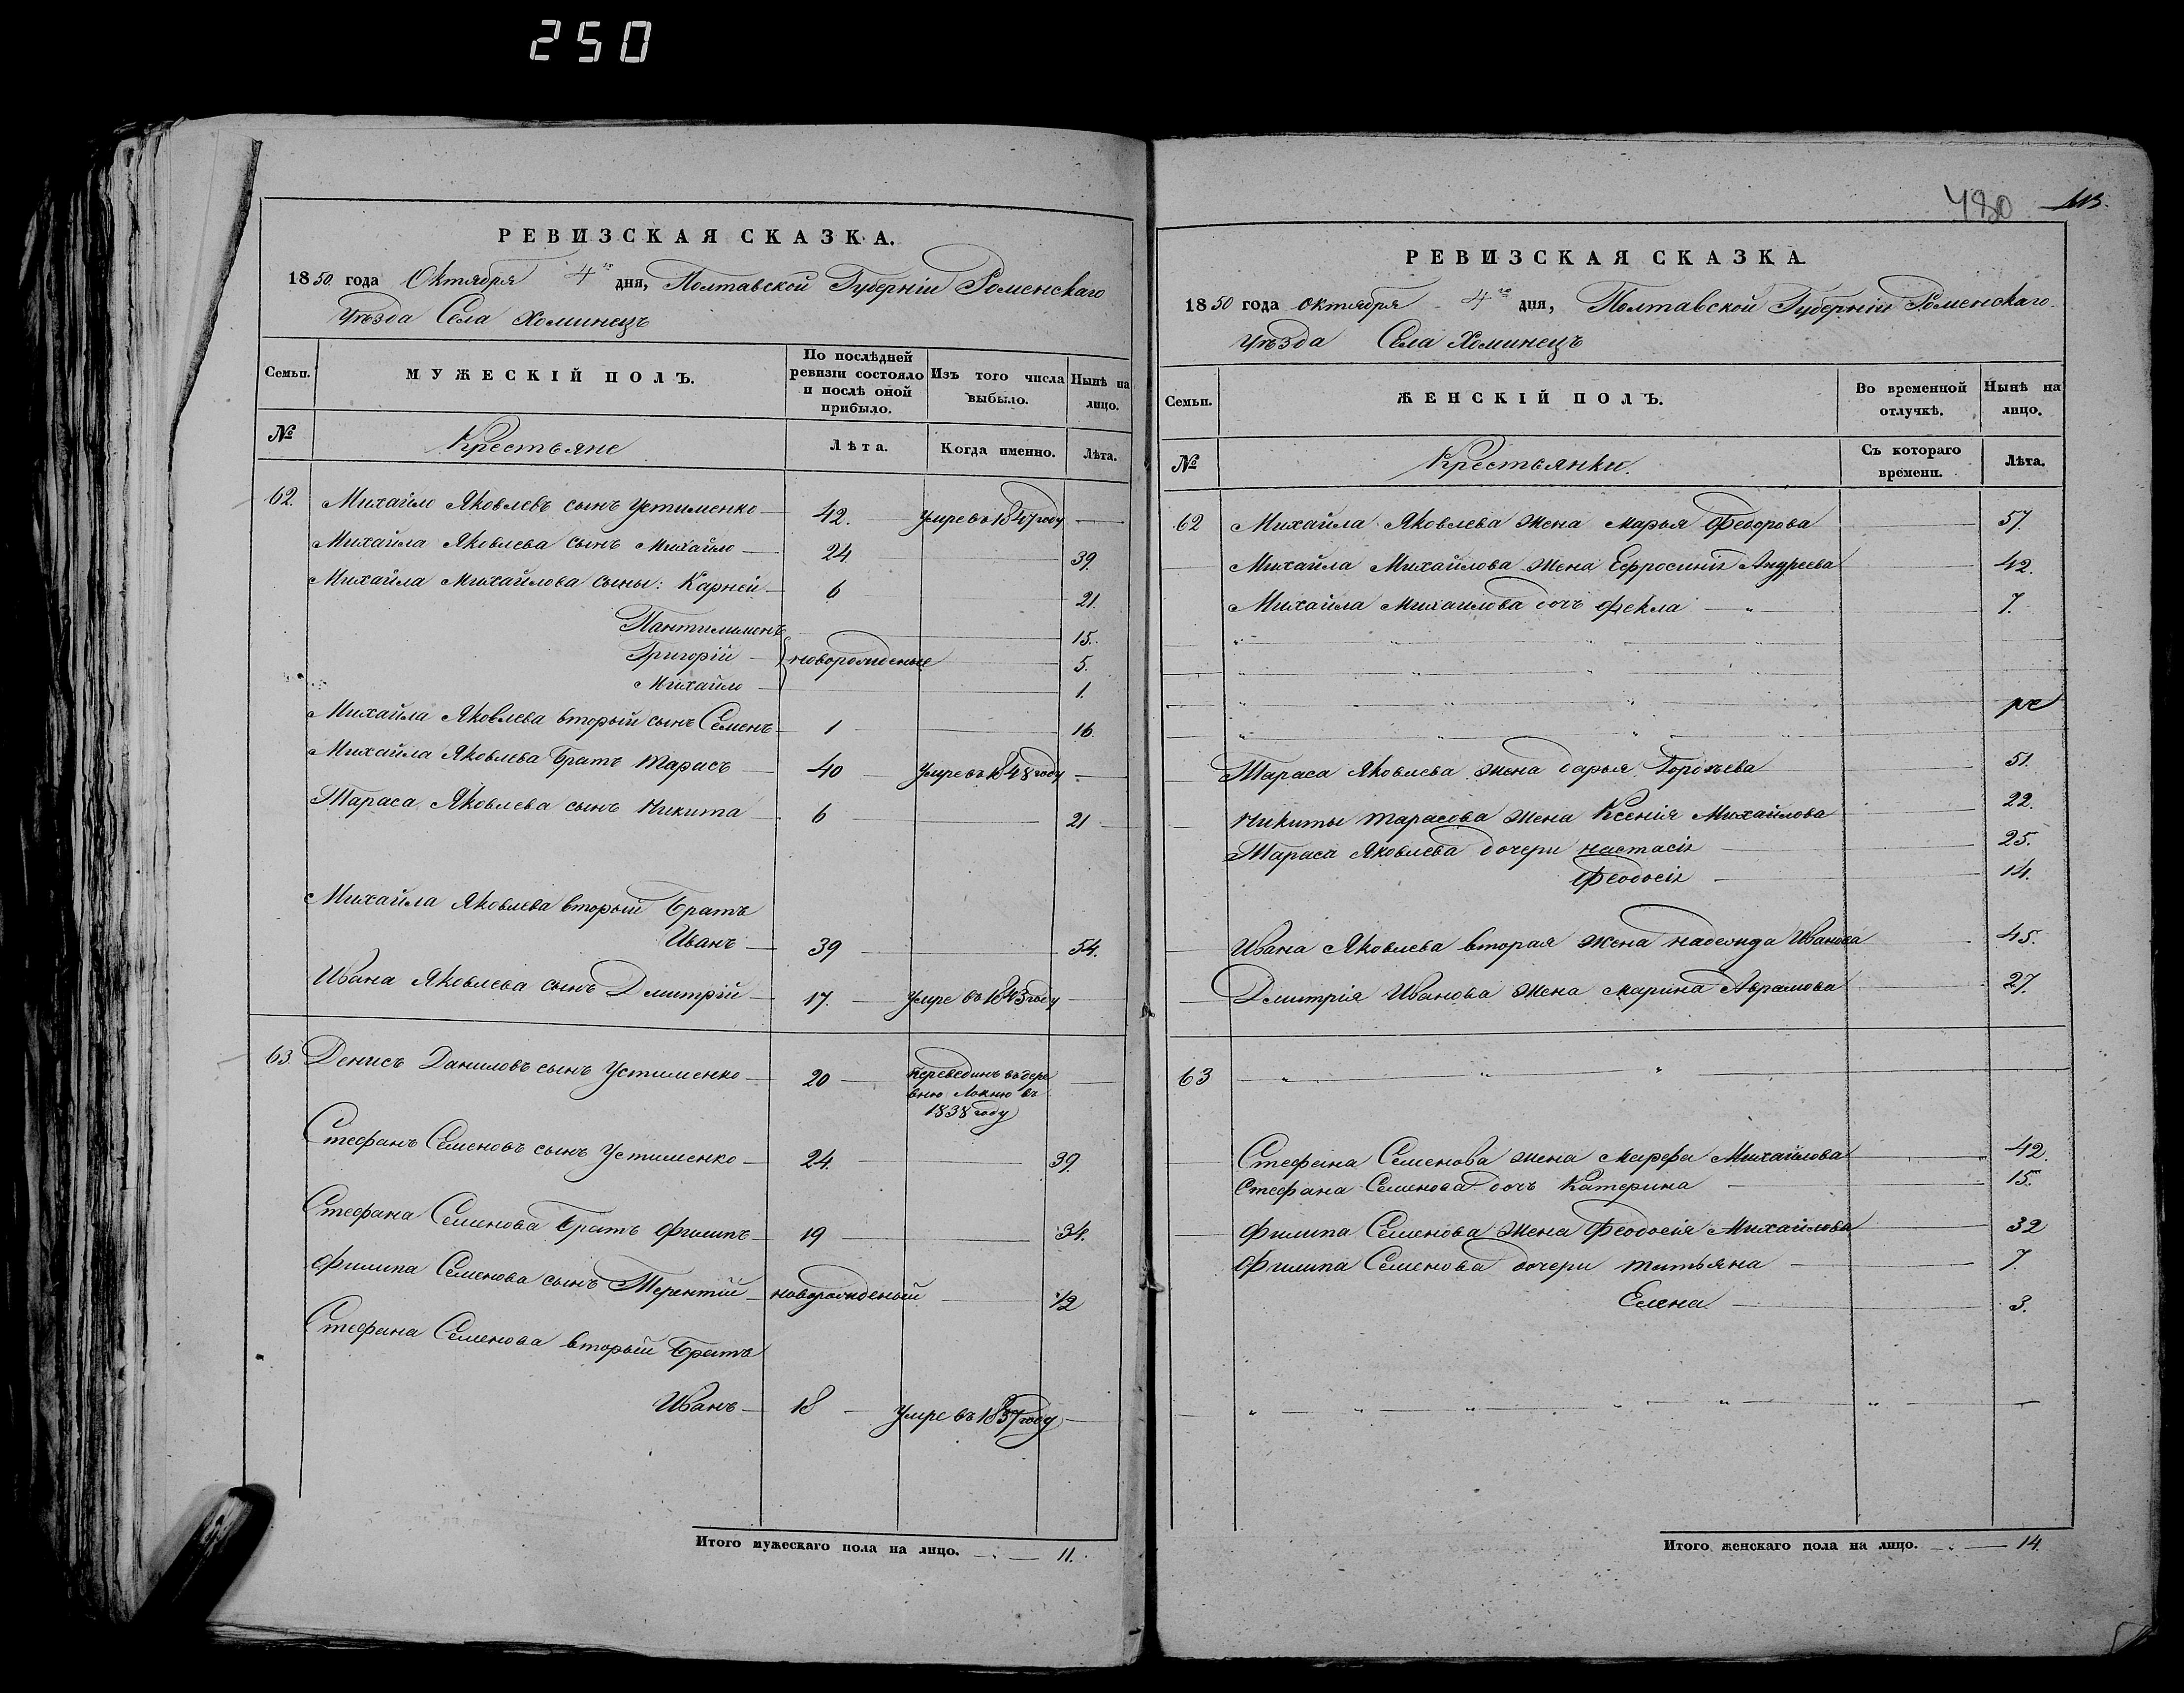 250
РЕВИЗСКАЯ СКАЗКА.
1850 года Октября 4го дня, Полтавской Губерніи Роменскаго
Уѣзда Села Хоминецъ
Семьи.
МУЖЕСКІЙ ПОЛЪ.
По послѣдней ревизіи состояло и послѣ оной прибыло.
Изъ того числа выбыло.
Нынѣ на лицо.
№
Крестьяне
Лѣта.
Когда именно.
Лѣта.
62. Михайло Яковлевъ сынъ Устименко — 42. — умре въ 1847 году —
Михайла Яковлева сынъ Михайло — 24. — 39.
Михайла Михайлова сыны: Карней — 6 21.
Пантилимонъ — 15.
Григорій — новорожденые — 5.
Михайло — 1.
Михайла Яковлева вторый сынъ Семенъ — 1 — 16.
Михайла Яковлева братъ Тарасъ — 40 — умре въ 1848 году —
Тараса Яковлева сынъ Никита — 6 — 21 —
Михайла Яковлева вторый братъ
Иванъ — 39 — 54.
Ивана Яковлева сынъ Дмитрій — 17. — умре въ 1843 году —
63. Денисъ Даниловъ сынъ Устименко — 20 — перевединъ въ дере
вню Локню въ
1838 году
Стефанъ Семеновъ сынъ Устименко — 24. — 39.
Стефана Семенова братъ Филипъ — 19 — 34.
Филипа Семенова сынъ Терентій — новорожденый — 1/2
Стефана Семенова вторый братъ
Иванъ — 18 — умре въ 1837 году —
Итого мужескаго пола на лицо. — 11.
480
РЕВИЗСКАЯ СКАЗКА
1850 года октября 4го дня, Полтавской Губерніи Роменскаго
Уѣзда Села Хоминецъ
Семьи.
ЖЕНСКІЙ ПОЛЪ.
Во временной отлучкѣ.
Нынѣ на лицо.
№
Крестьянки.
Съ котораго времени.
Лѣта.
62 Михайла Яковлева жена марья Федорова — 57.
Михайла Михайлова жена Ефросинія Андреева — 42.
Михайла Михайлова дочь Фекла — 7.
Тараса Яковлева жена дарья Горохьева 51.
Никиты тарасова жена Ксенія Михайлова — 22.
Тараса Яковлева дочери настасія — 25.
Феодосія — 14.
Ивана Яковлева вторая жена надежда Иванова 45.
Дмитрія Иванова жена марина Аврамова — 27.
63
Стефана Семенова жена Марфа Михайлова — 42.
Стефана Семенова дочь Катерина — 15.
Филипа Семенова жена Феодосія Михайлова — 32
Филипа Семенова дочери татьяна — 7.
Елена — 3.
Итого женскаго пола на лицо. — 14.